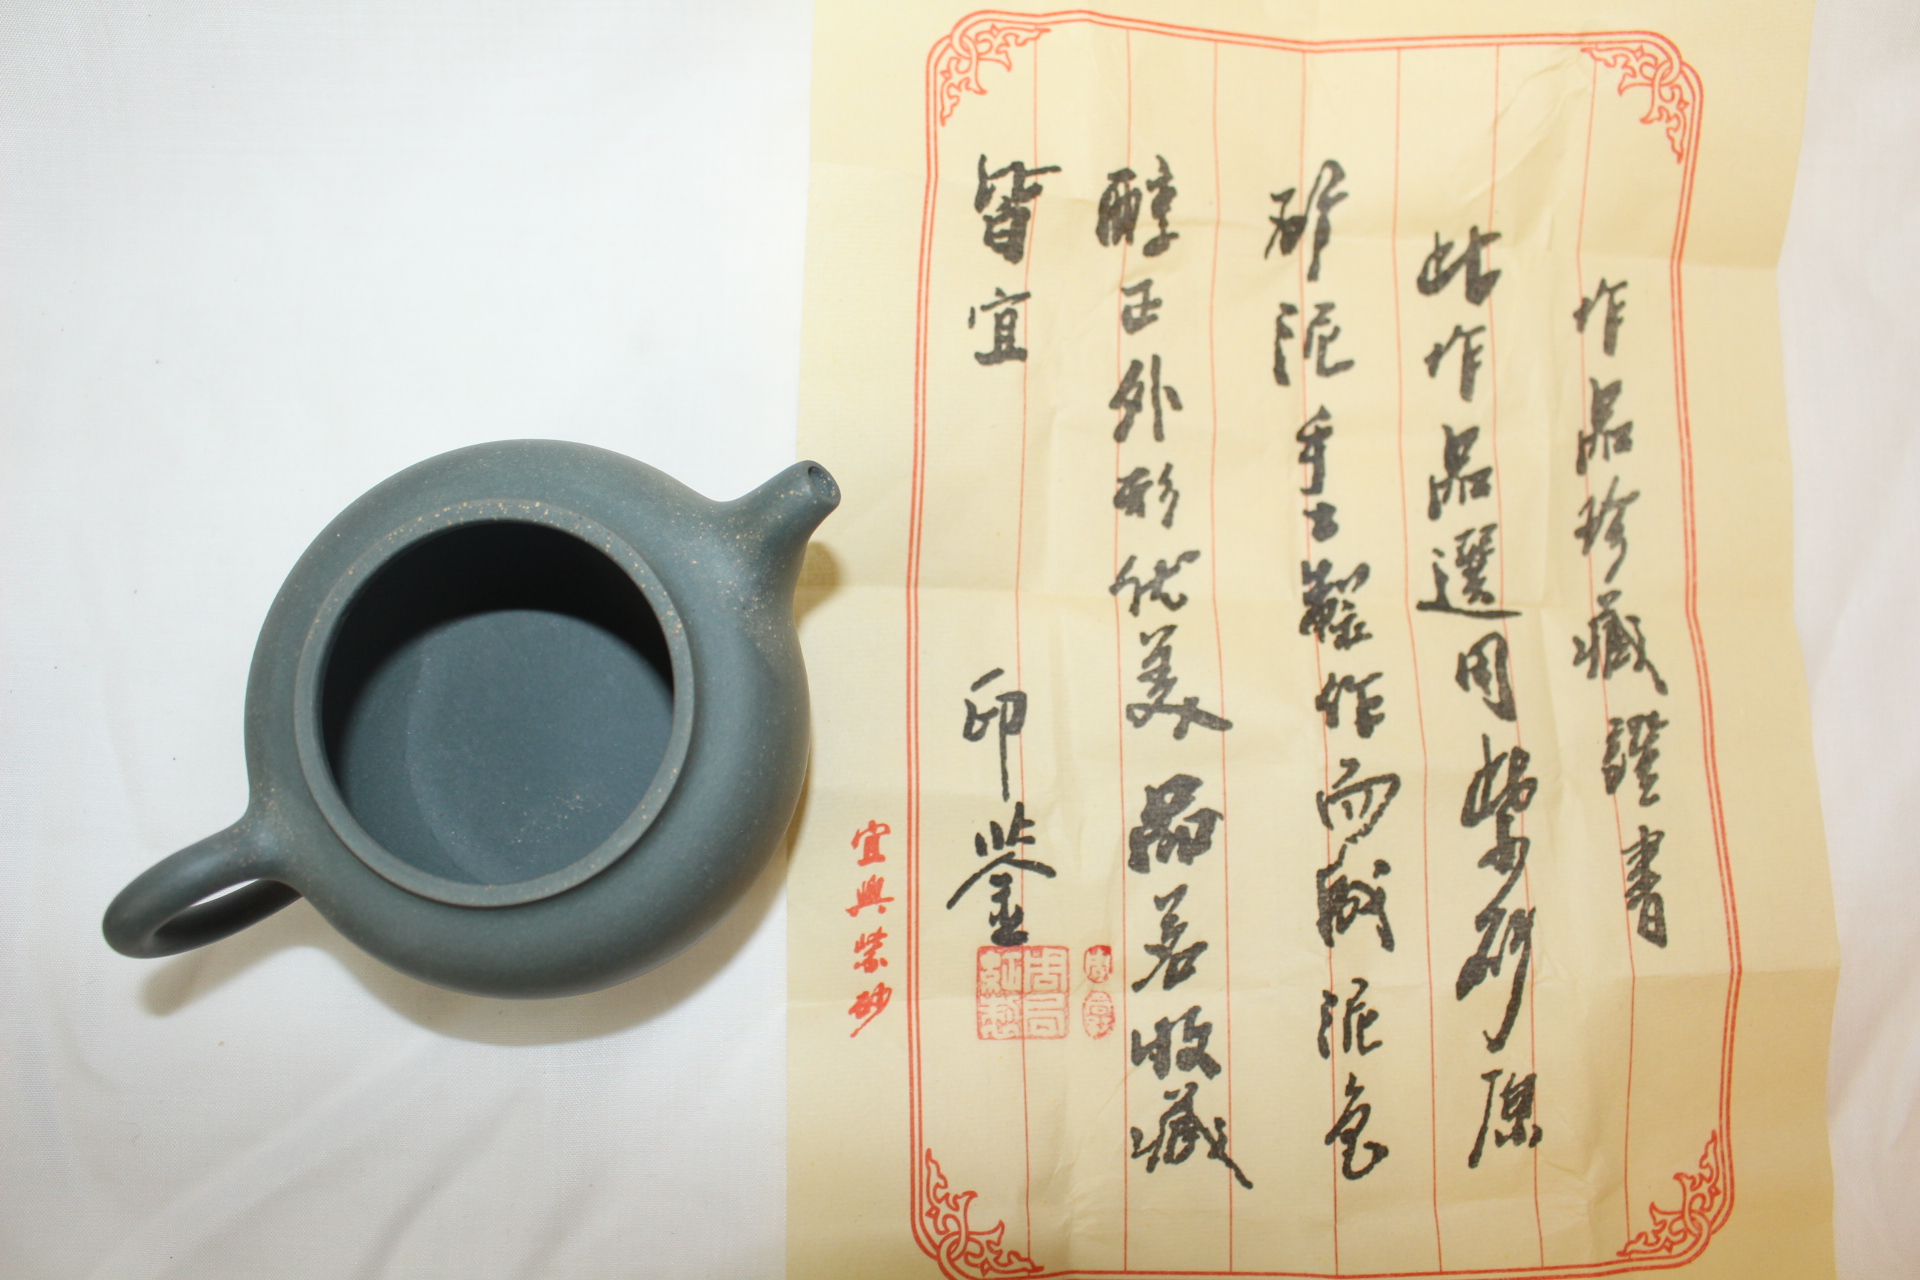 作品珍藏證書
此作品選用紫砂原
砂泥手工製作而成泥色
醇正外形优美品茗收藏
皆宜
印鉴
宜興紫砂